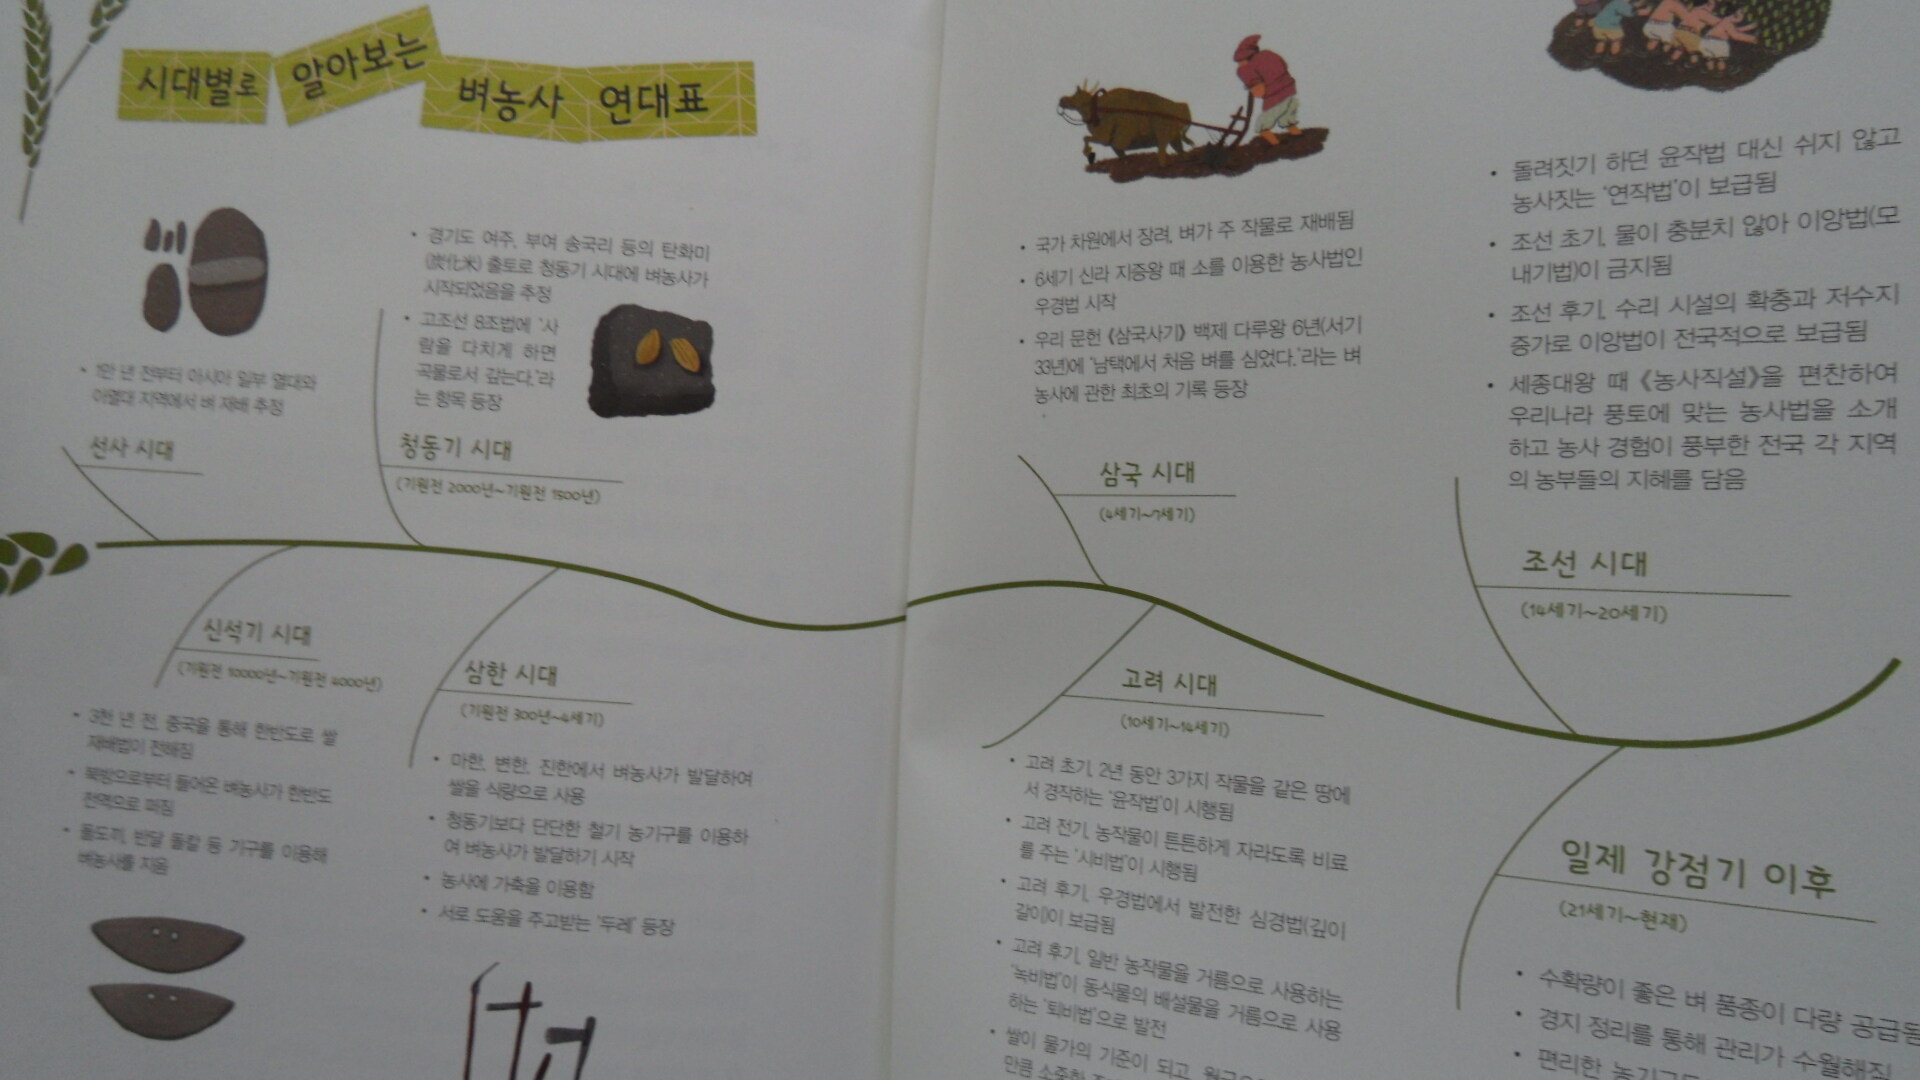 시대별로 알아보는 벼농사 연대표
1만 년 전부터 아시아 일부 열대와
아열대 지역에서 벼 재배 추정
선사 시대
• 경기도 여주, 부여 송국리 등의 탄화미
(炭化米) 출토로 청동기 시대에 벼농사가
시작되었음을 추정
• 고조선 8조법에 '사
람을 다치게 하면
곡물로서 갚는다.'라
는 항목 등장
청동기 시대
(기원전 2000년~기원전 1500년)
신석기 시대
(기원전 10000년~기원전 4000년)
• 3천 년 전, 중국을 통해 한반도로 쌀
재배법이 전해짐
• 북방으로부터 들어온 벼농사가 한반도
전역으로 퍼짐
• 돌도끼, 반달 돌칼 등 기구를 이용해
벼농사를 지음
삼한 시대
(기원전 300년~4세기)
• 마한, 변한, 진한에서 벼농사가 발달하여
쌀을 식량으로 사용
• 청동기보다 단단한 철기 농기구를 이용하
여 벼농사가 발달하기 시작
• 농사에 가축을 이용함
• 서로 도움을 주고받는 '두레' 등장
• 국가 차원에서 장려, 벼가 주 작물로 재배됨
• 6세기 신라 지증왕 때 소를 이용한 농사법인
우경법 시작
• 우리 문헌 《삼국사기》 백제 다루왕 6년(서기
33년)에 '남택에서 처음 벼를 심었다.'라는 벼
농사에 관한 최초의 기록 등장
삼국 시대
(4세기~7세기)
고려 시대
(10세기~14세기)
• 고려 초기, 2년 동안 3가지 작물을 같은 땅에
서 경작하는 '윤작법'이 시행됨
• 고려 전기, 농작물이 튼튼하게 자라도록 비료
를 주는 '시비법'이 시행됨
• 고려 후기, 우경법에서 발전한 심경법(깊이
갈이)이 보급됨
• 고려 후기, 일반 농작물을 거름으로 사용하는
'녹비법'이 동식물의 배설물을 거름으로 사용
하는 '퇴비법'으로 발전
• 쌀이 물가의 기준이 되고,
만큼 소중한
• 돌려짓기 하던 윤작법 대신 쉬지 않고
농사짓는 '연작법'이 보급됨
• 조선 초기, 물이 충분치 않아 이앙법(모
내기법)이 금지됨
• 조선 후기, 수리 시설의 확충과 저수지
증가로 이앙법이 전국적으로 보급됨
• 세종대왕 때 《농사직설》을 편찬하여
우리나라 풍토에 맞는 농사법을 소개
하고 농사 경험이 풍부한 전국 각 지역
의 농부들의 지혜를 담음
조선 시대
(14세기~20세기)
일제 강점기 이후
(21세기~현재)
• 수확량이 좋은 벼 품종이 다량 공급됨
• 경지 정리를 통해 관리가 수월해짐
• 편리한